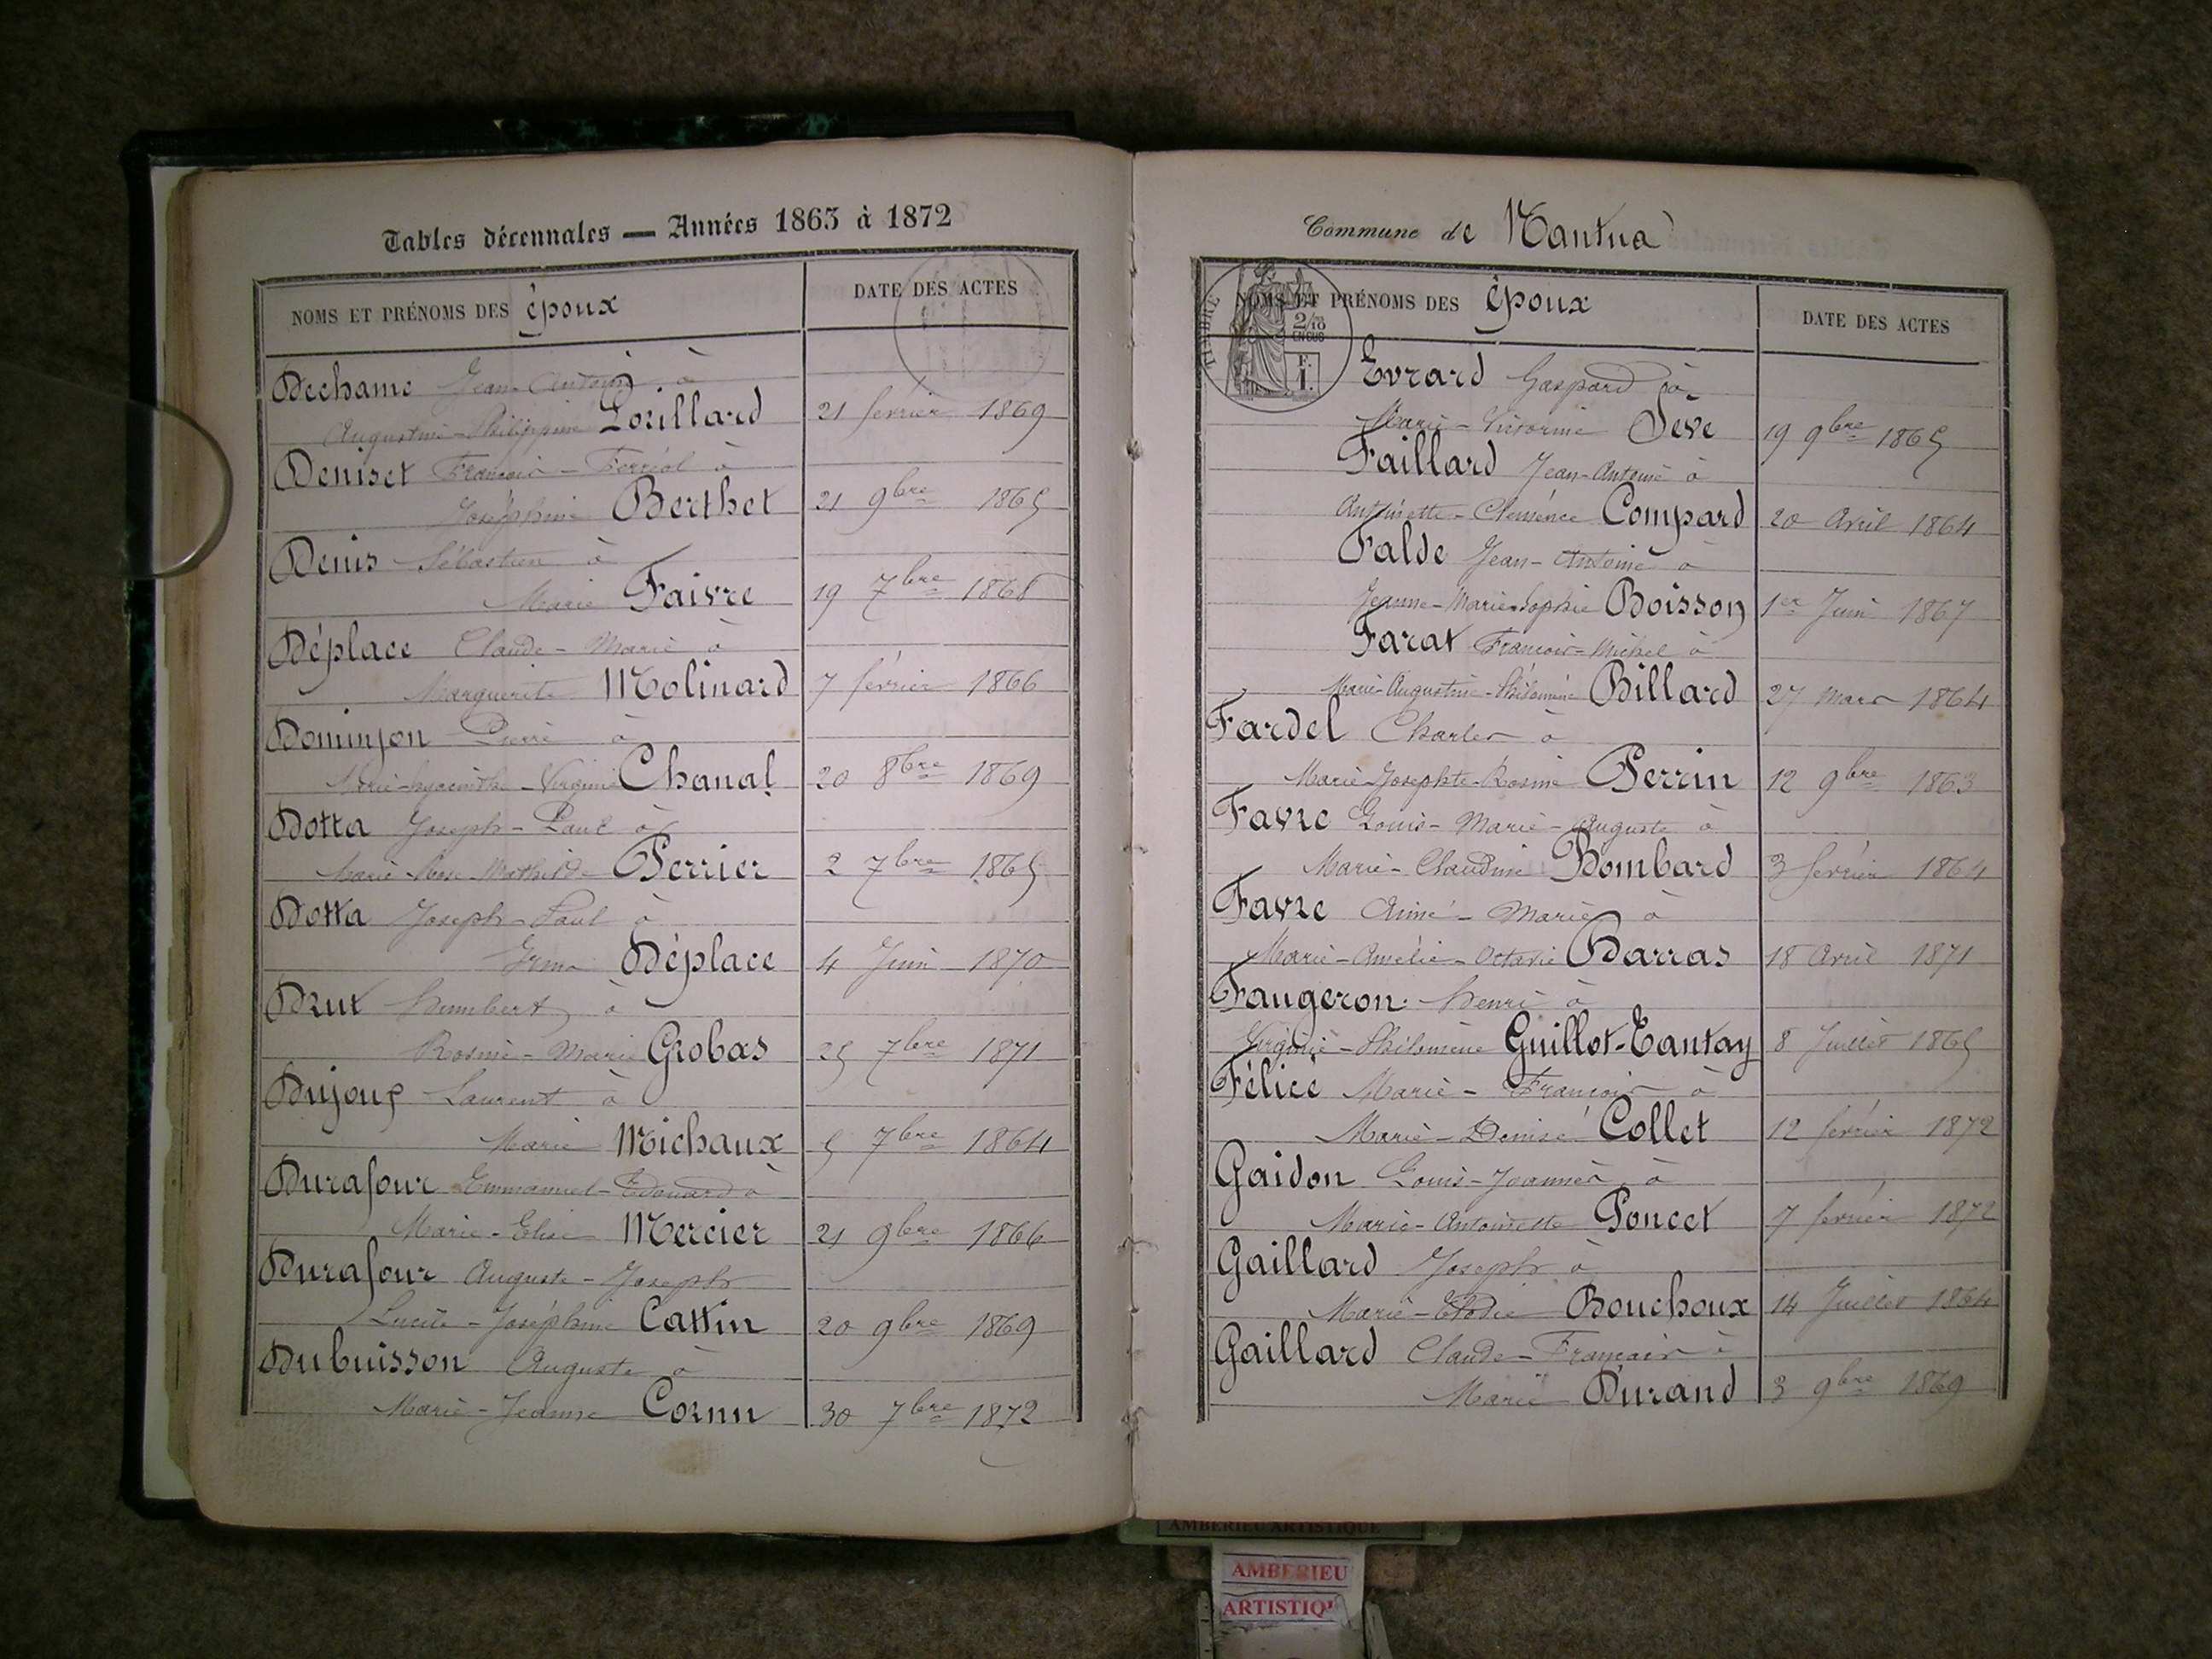 Tables décennales — Années 1863 à 1872
NOMS ET PRÉNOMS DES époux
DATE DES ACTES
Dechame Jean-Antoine à
Augustine-Philippine Lorillard 21 fevrier 1869
Deniset François-Ferréol à
Joséphine Berthet 21 9bre 1865
Denis Sébastien à
Marie Faivre 19 7bre 1868
Déplace Claude-Marie à
Marguerite Molinard 7 février 1866
Dominjon Pierre à
Marie-hyacinthe-Virginie Chanal 20 8bre 1869
Dotta Joseph-Paul à
Marie Rose Mathilde Perrier 2 7bre 1865
Dotta Joseph-Paul à
Irma Déplace 4 Juin 1870
Drut humbert à
Rosine-Marie Grobas 25 7bre 1871
Dujoug Laurent à
Marie Michaux 5 7bre 1864
Durafour Emmanuel-Edouard à
Marie-Elise Mercier 21 9bre 1866
Durafour Auguste-Joseph
Lucile-Joséphine Cattin 20 9bre 1869
Dubuisson Auguste à
Marie-Jeanne Cornu 30 7bre 1872
Commune de Nantua
NOMS ET PRÉNOMS DES époux
DATE DES ACTES
TIMBRE
2/10
EN SUS
F.
1.
Evrard Gaspard à
Marie-Victorine Sève 19 9bre 1865
Faillard Jean-Antoine à
Antoinette-Clémence Compard 20 Avril 1864
Falde Jean-Antoine à
Jeanne-Marie-Sophie Boisson 1er Juin 1867
Farat François-Michel à
Marie-Augustine-Philomène Billard 27 Mars 1864
Fardel Charles à
Marie-Josephte-Rosine Perrin 12 9bre 1863
Favre Louis-Marie-Auguste à
Marie-Claudine Bombard 3 février 1864
Favre Aimé-Marie à
Marie-Amélie-Octavie Barras 18 Avril 1871
Faugeron henri à
Virginie-Philomène Guillot-Tantay 8 Juillet 1865
Félice Marie-François à
Marie-Denise Collet 12 février 1872
Gaidon Louis-Joannès à
Marie-Antoinette Poncet 7 fevrier 1872
Gaillard Joseph à
Marie-Elodie Bouchoux 14 Juillet 1864
Gaillard Claude-François à
Marie Durand 3 9bre 1869
AMBERIEU ARTISTIQUE
AMBERIEU
ARTISTIQU